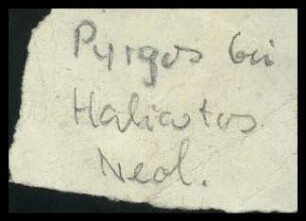 Pyrgos bei
Haliartos
Neol.